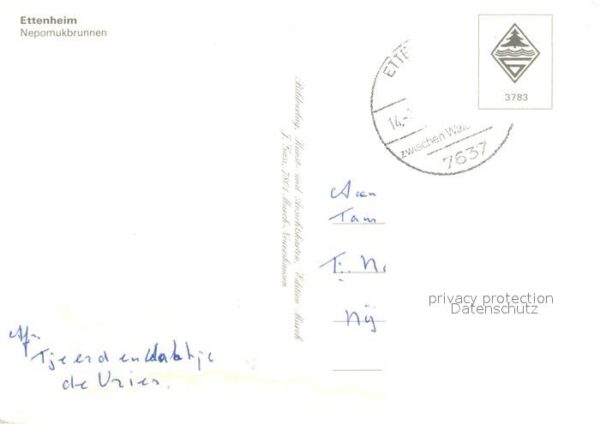 Ettenheim
Nepomukbrunnen
3783
ETTE
14.-
zwischen Wal
7637
Bildverlag, Kunst- und Ansichtskarten, Edition March
J. Goss, 7801 March-Neuershausen
Aan
Fam
T. N
Nij
privacy protection
Datenschutz
Afz.
Tjeerd en
de Vries.